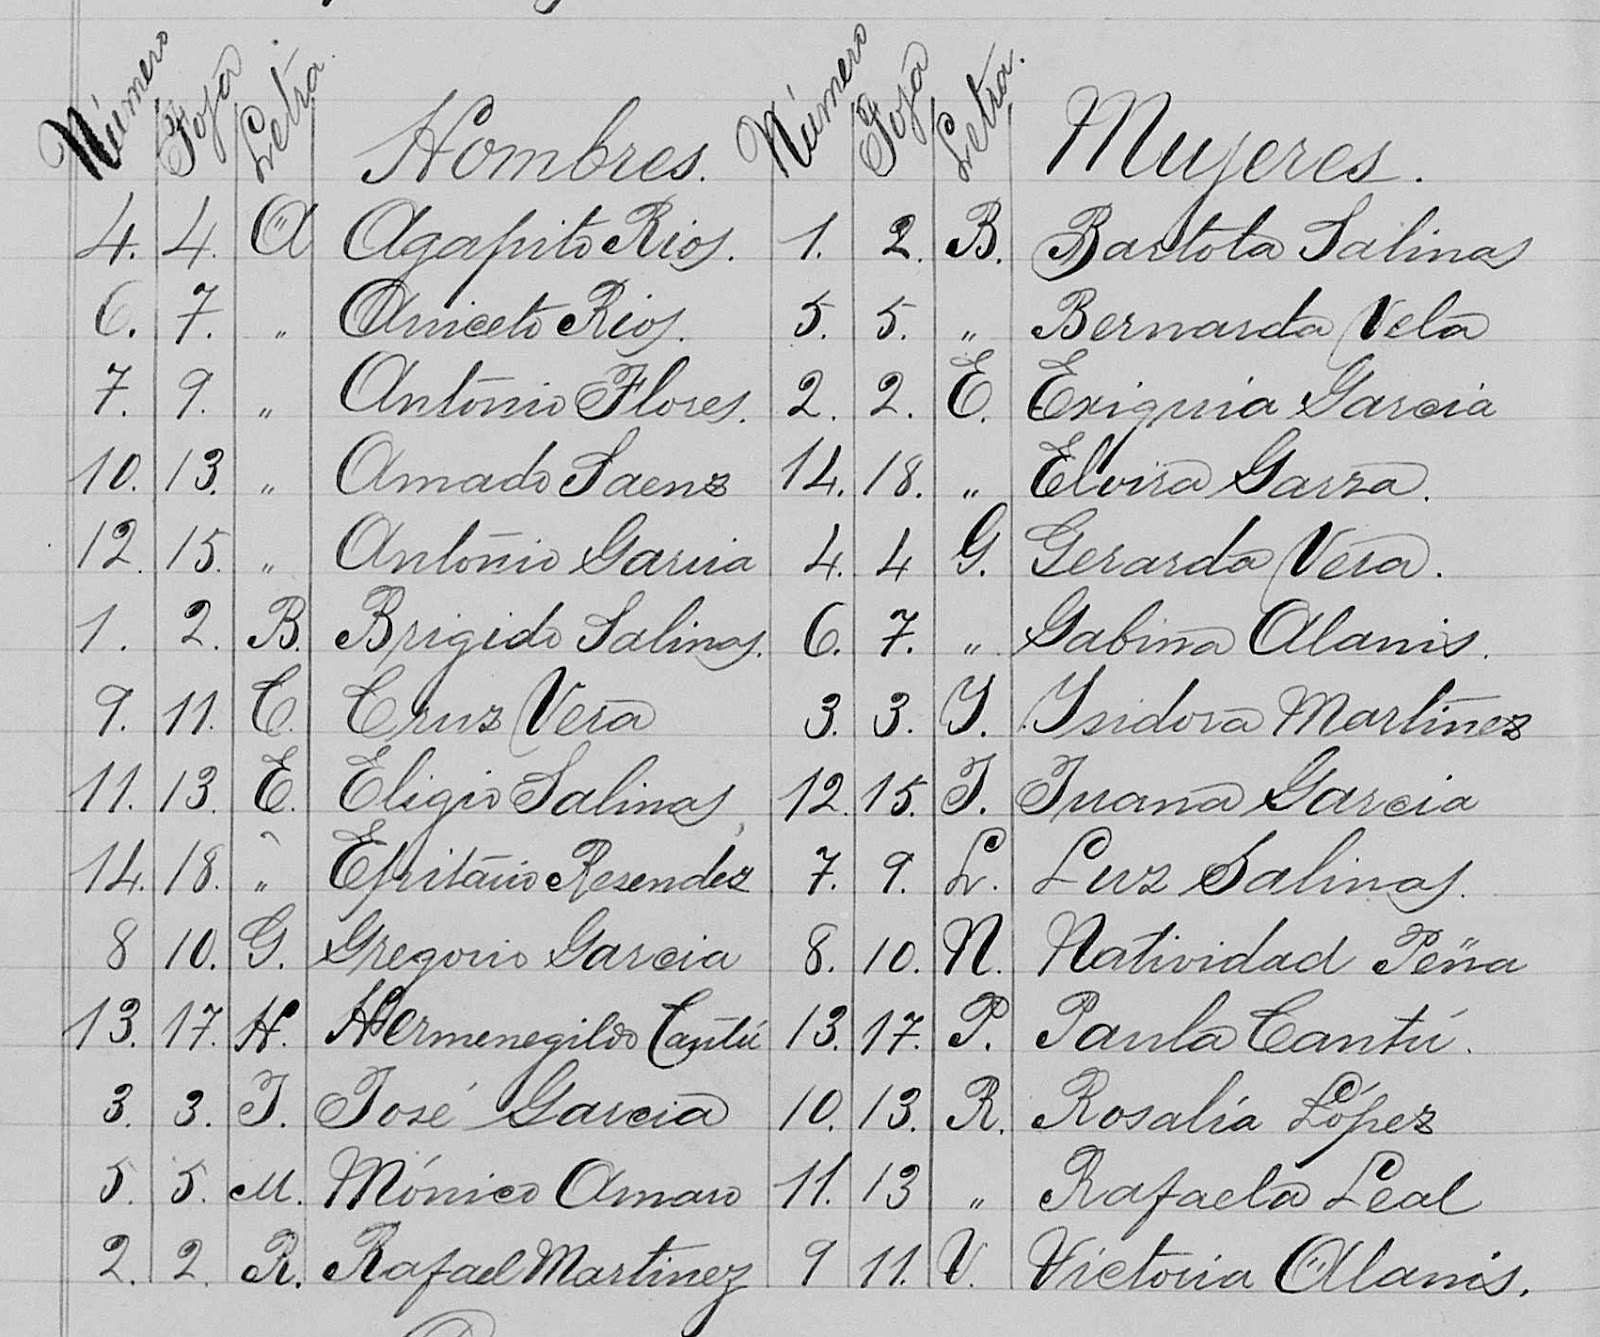 Número Foja Letra Hombres. Número Foja Letra. Mujeres.
4. 4. A Agapito Rios. 1. 2. B. Bartola Salinas
6. 7. " Aniceto Rios. 5. 5. " Bernarda Vela
7. 9. " Antonio Flores. 2. 2. E. Exiquia Garcia
10. 13. " Amado Saenz 14. 18. " Elvira Garza.
12. 15. " Antonio Garcia 4. 4 G. Gerarda Vera.
1. 2. B. Brigido Salinas. 6. 7. " Gabina Alanis.
9. 11. C. Cruz Vera 3. 3. I. Isidora Martinez
11. 13. E. Eligio Salinas 12. 15. J. Juana Garcia
14. 18. " Epitacio Resendez 7. 9. L. Luz Salinas.
8 10. G. Gregorio Garcia 8. 10. N. Natividad Peña
13. 17. H. Hermenegildo Cantú 13. 17. P. Paula Cantú.
3. 3. J. José Garcia 10. 13. R. Rosalía López
5. 5. M. Mónico Amaro 11. 13 " Rafaela Leal
2. 2. R. Rafael Martinez 9 11. V. Victoria Alanis.